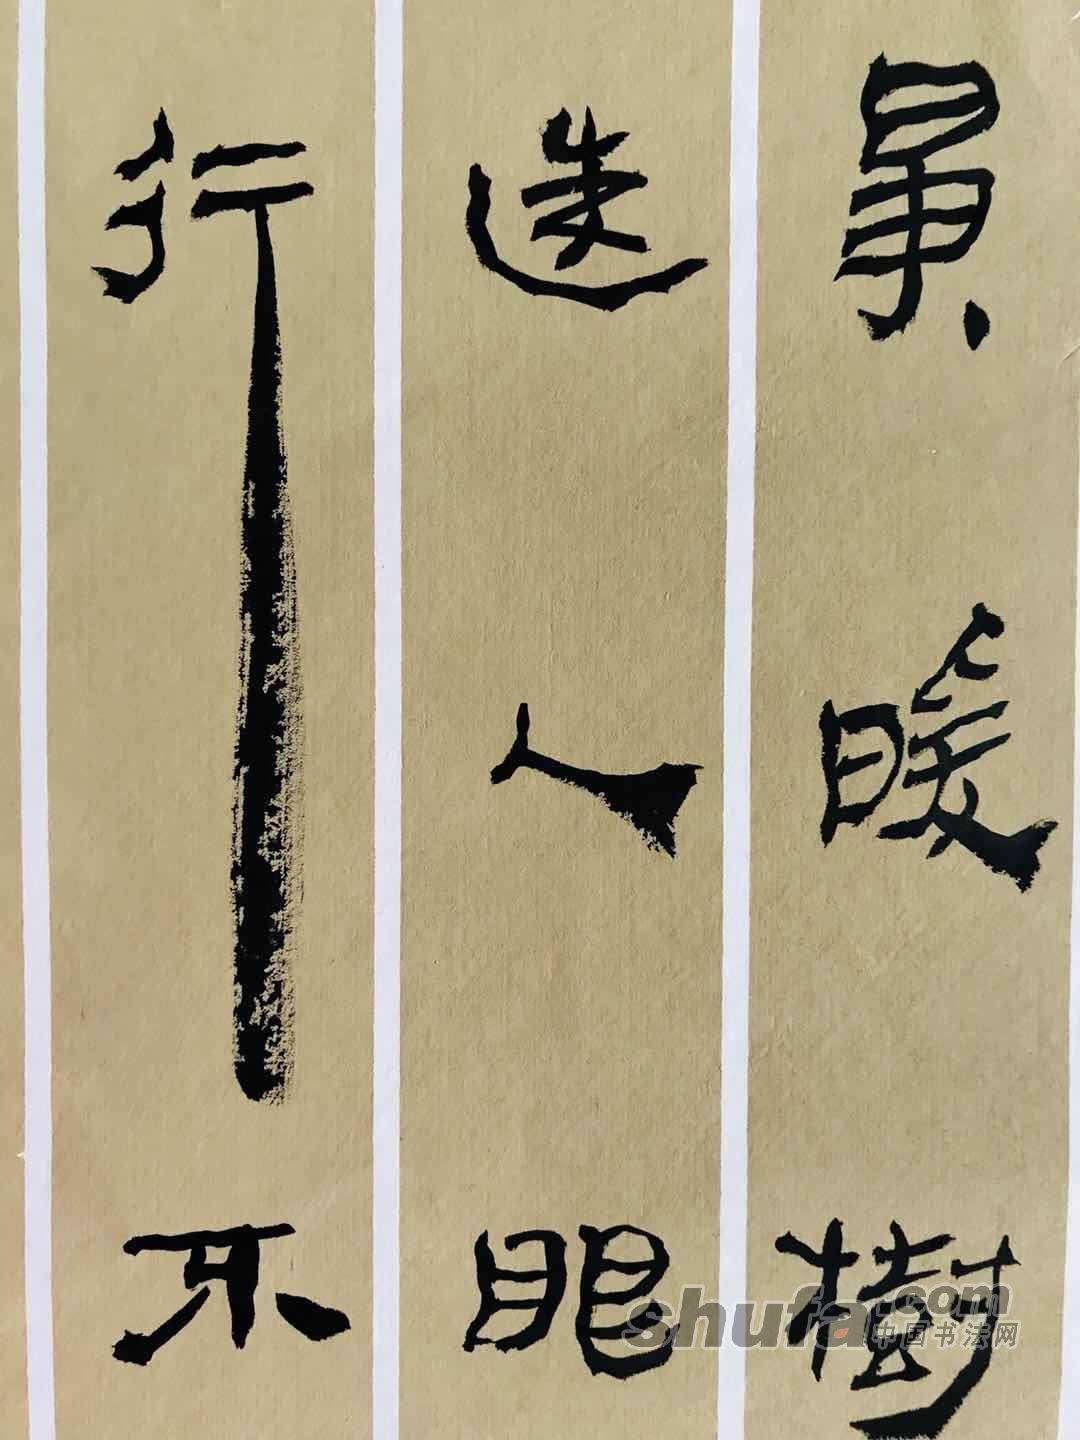 爭暖樹
迷人眼
行不
shufa.com
中国书法网